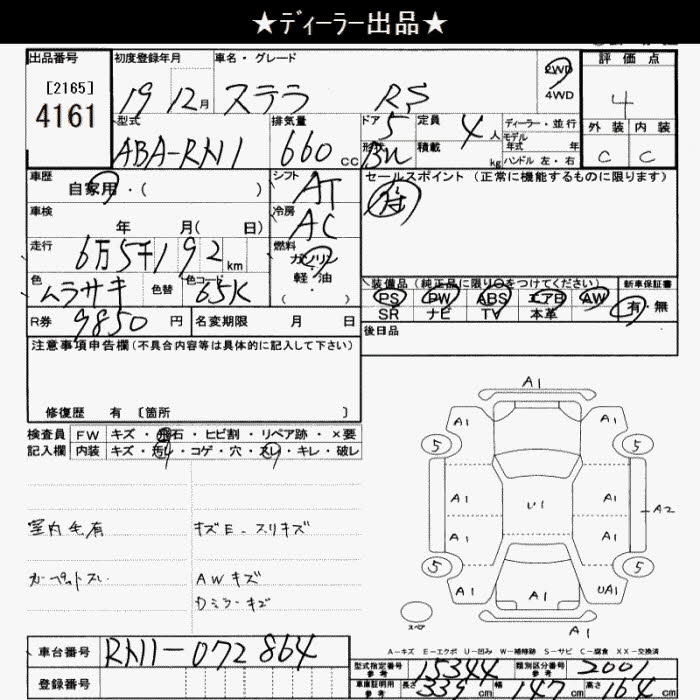 ★ディーラー出品★
出品番号 初度登録年月 車名・グレード 2WD 評価点
[2165] 19 12月 ステラ RS 4WD 4
4161 型式 排気量 ドア 定員 ディーラー・並行 外装 内装
ABA-RN1 660cc 5 4人 モデル年式 年 C C
形状 積載 kg ハンドル 左・右
車歴 シフト セールスポイント (正常に機能するものに限ります)
自家用・( ) AT
車検 冷房
年 月( 日) AC
走行 燃料
6万5千192km ガソリン
軽・油
色 色替 色コード ( ) 装備品 (純正品に限り○をつけてください) 新車保証書
ムラサキ 65K PS PW ABS エアB AW 有・無
R券 9850円 名変期限 月 日 SR ナビ TV 本革
後日品
注意事項申告欄(不具合内容等は具体的に記入して下さい)
修復歴 有 〔箇所 〕
検査員 FW キズ・飛石・ヒビ割・リペア跡・×要
記入欄 内装 キズ・汚れ・コゲ・穴・スレ・キレ・破レ
室内毛有 キズE-スリキズ
カーペットスレ AWキズ
Dミラーキズ
A1
A1 A1
5 5
A1 U1 A1 A2
A1 A1
5 5
A1 A1 UA1
スペア A1
A-キズ E-エクボ U-凹み W-補修跡 S-サビ C-腐食 XX-交換済
車台番号 RN1-072864
型式指定番号 参考 15344 類別区分番号 参考 2001
登録番号 車庫証明用 参考 長さ 339cm 幅 147cm 高さ 164cm